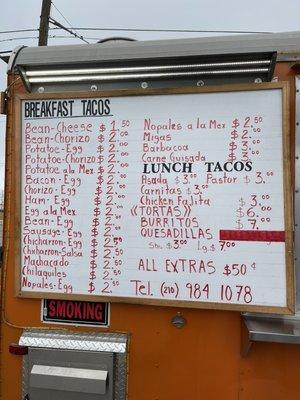 BREAKFAST TACOS
Bean-Cheese $1.50
Bean-Chorizo $2.00
Potatoe-Egg $2.00
Potatoe-Chorizo $2.00
Potatoe a la Mex $2.00
Bacon-Egg $2.00
Chorizo-Egg $2.00
Ham-Egg $2.00
Egg a la Mex $2.00
Bean-Egg $2.00
Sausage-Egg $2.00
Chicharron-Egg $2.50
Chicharron-Salsa $2.50
Machacado $2.50
Chilaquiles $2.50
Nopales-Egg $2.00
Nopales a la Mex $2.50
Migas $2.00
Barbacoa $3.00
Carne Guisada $3.00
LUNCH TACOS
Asada $3.00 Pastor $3.00
Carnitas $3.00
Chicken Fajita $3.00
«TORTAS» $6.00
BURRITOS $7.00
QUESADILLAS
Sm. $3.00 Lg. $7.00
ALL EXTRAS $50¢
Tel. (210) 984 1078
SMOKING